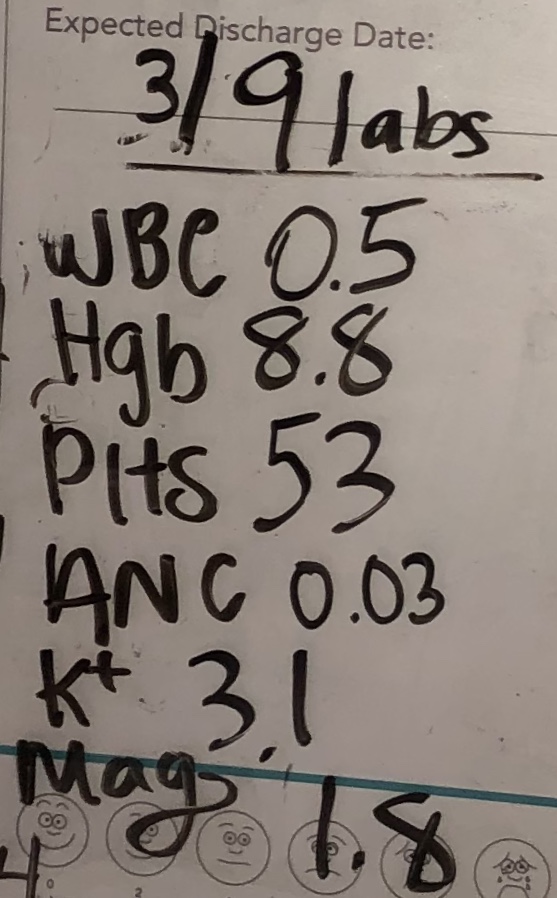 Expected Discharge Date:
3/9 labs
WBC 0.5
Hgb 8.8
Plts 53
ANC 0.03
K+ 3.1
Mag 1.8
0 2